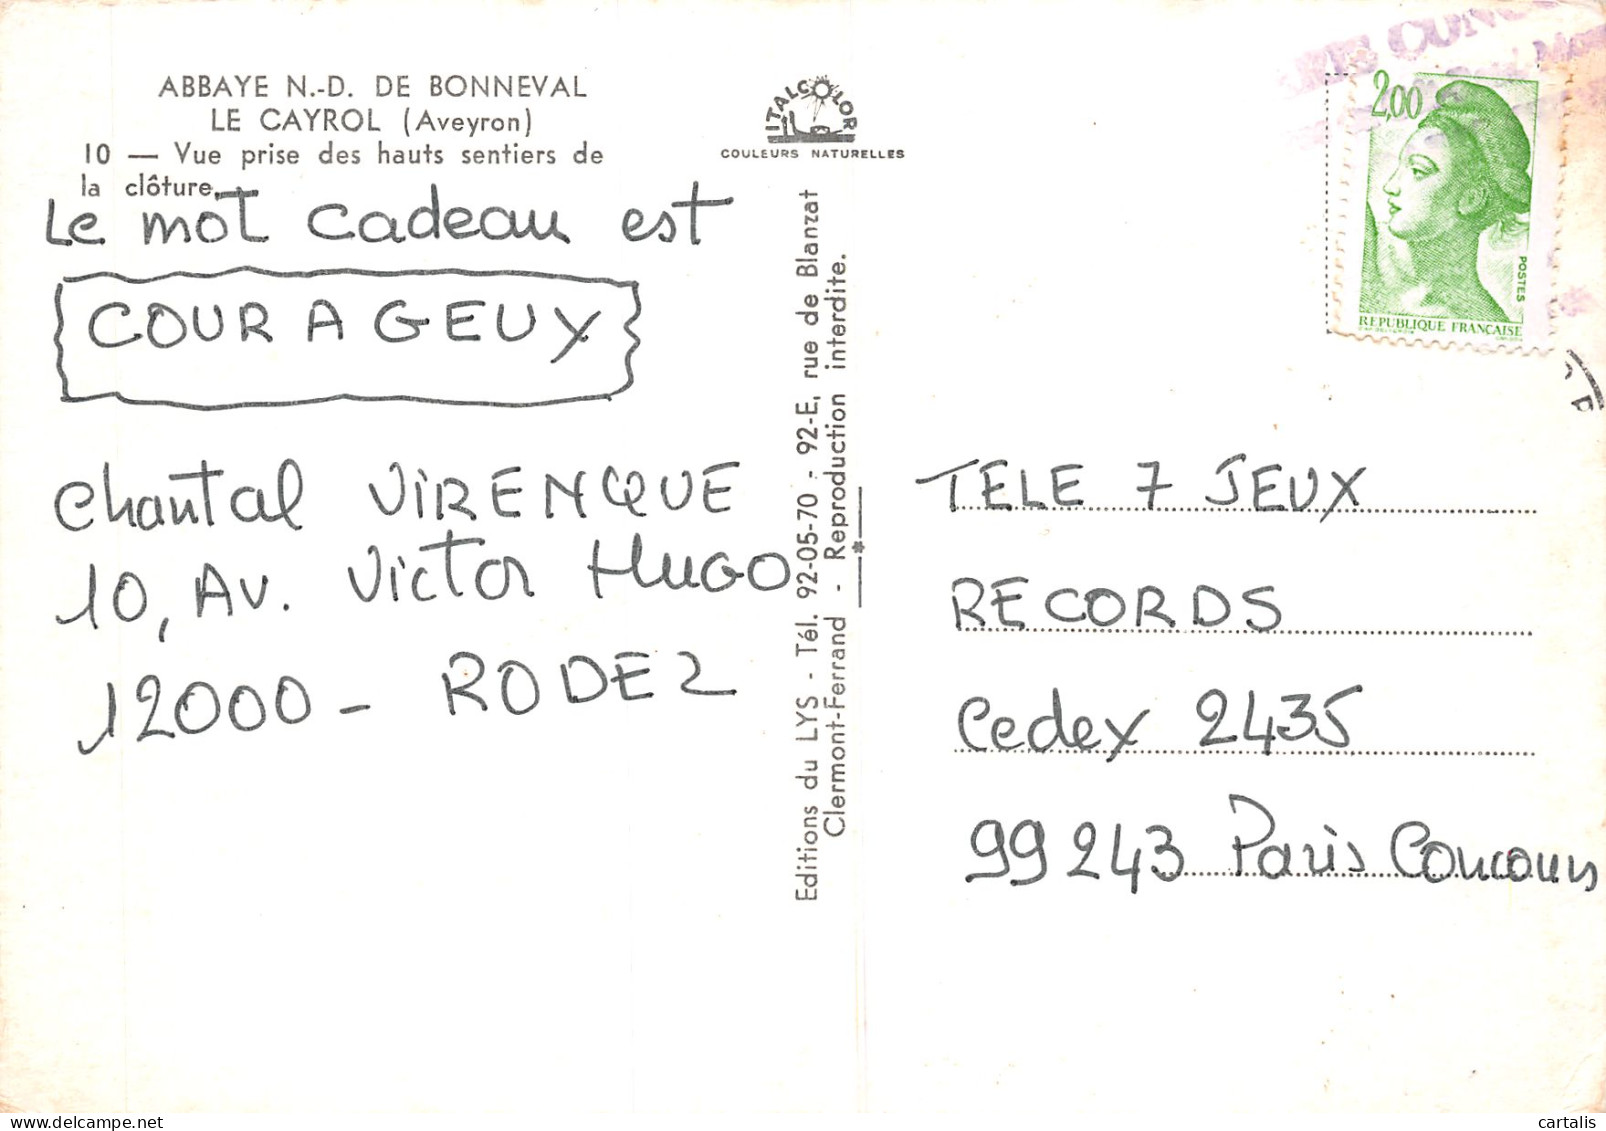 ABBAYE N.-D. DE BONNEVAL
LE CAYROL (Aveyron)
10 — Vue prise des hauts sentiers de
la clôture.
Le mot cadeau est
COURAGEUX
Chantal VIRENQUE
10, Av. Victor HUGO
12000 - RODEZ
ITALCOLOR
COULEURS NATURELLES
Editions du LYS - Tél. 92-05-70 - 92-E, rue de Blanzat
Clermont-Ferrand - Reproduction interdite.
2,00
POSTES
REPUBLIQUE FRANÇAISE
TELE 7 JEUX
RECORDS
Cedex 2435
99243 Paris Concours
cartalis